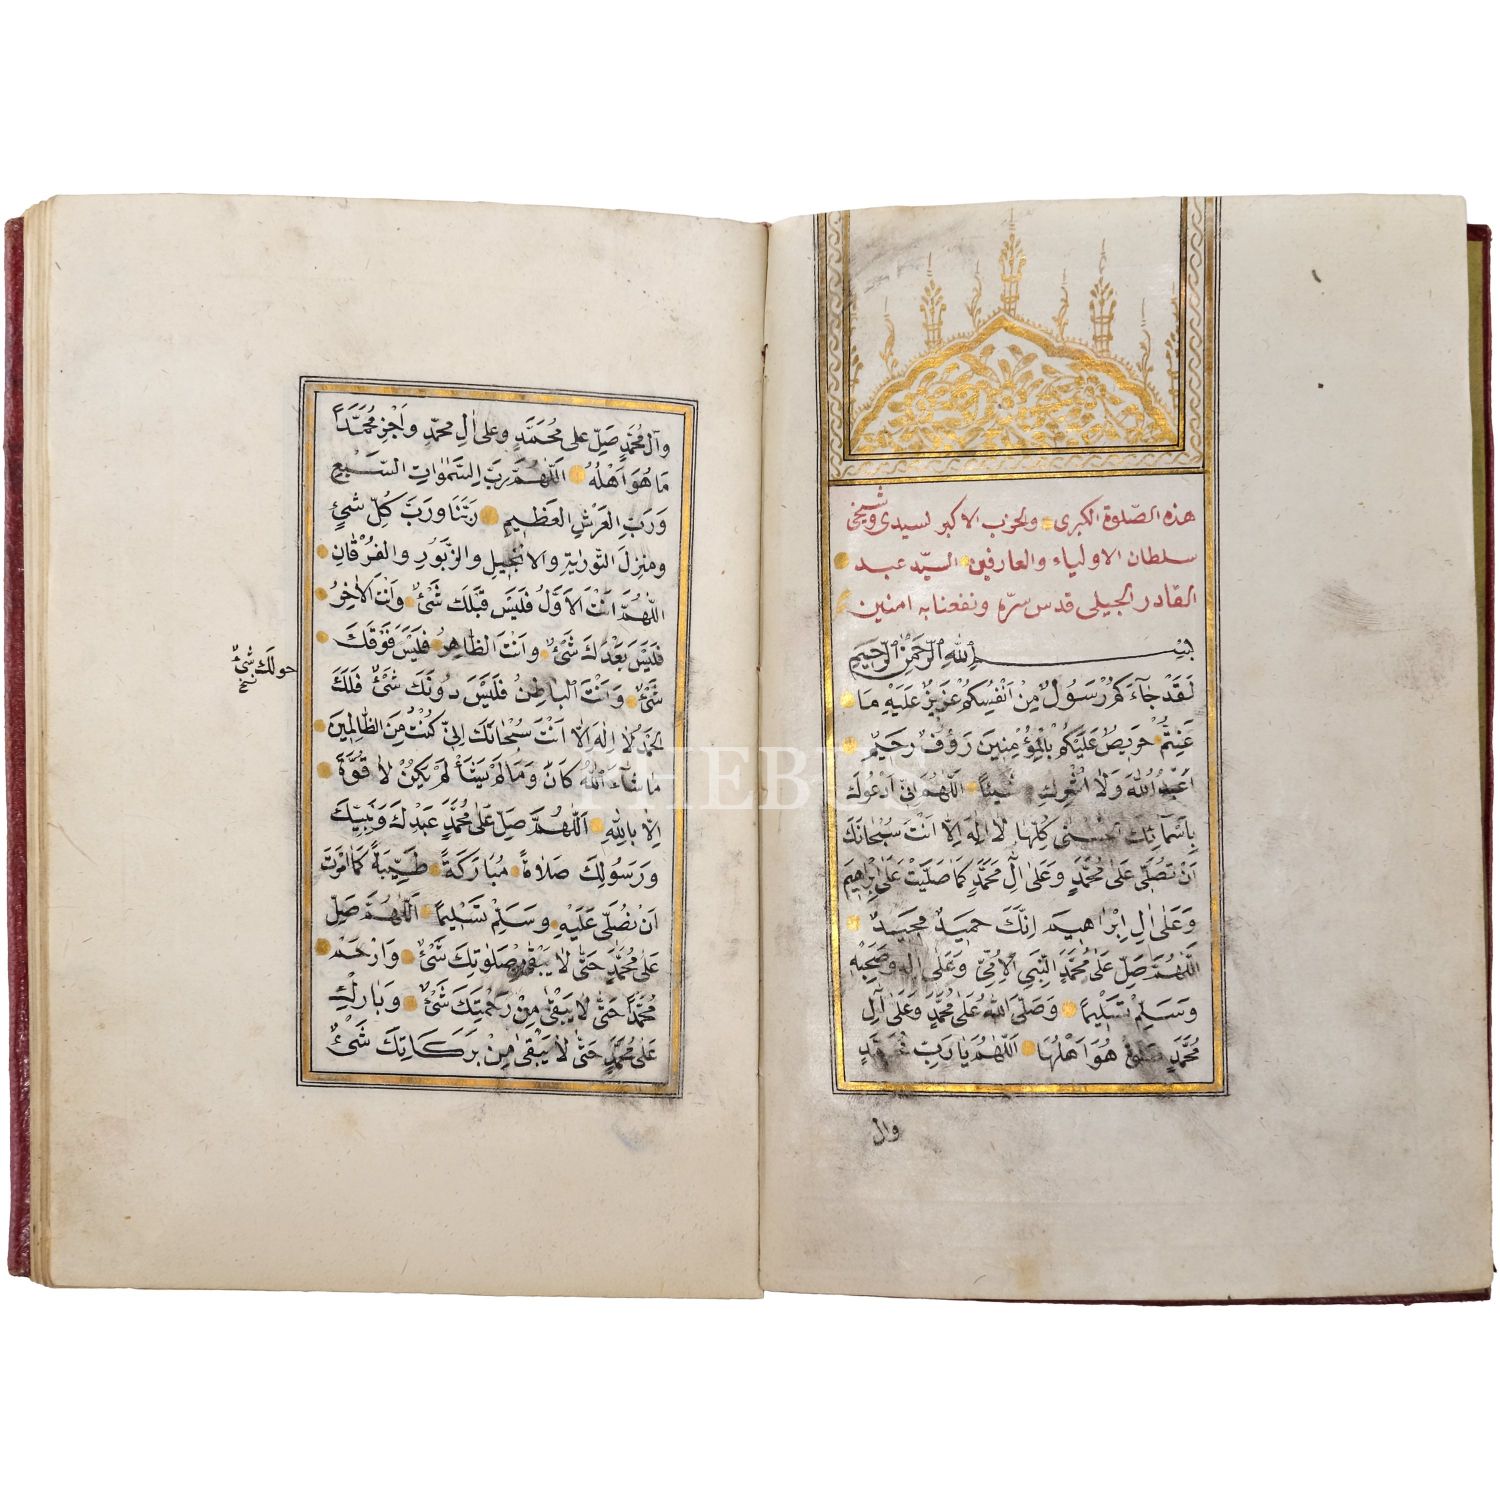 هذه الصّلوة الكبرى والحزب الاكبر لسيدى وشيخى
سلطان الاولياء والعارفين السيّد عبد
القادر الجيلى قدس سرّه ونفعنا به امين
بِسْمِ اللهِ الرَّحْمٰنِ الرَّحِيمِ
لَقَدْ جَآءَكُمْ رَسُولٌ مِنْ اَنْفُسِكُمْ عَزِيزٌ عَلَيْهِ مَا
عَنِتُّمْ حَرِيصٌ عَلَيْكُمْ بِالْمُؤْمِنِينَ رَؤُفٌ رَحِيمٌ
اَعْبُدُ اللهَ وَلَا اُشْرِكُ شَيْئًا اَللّٰهُمَّ اِنّى اَدْعُوكَ
بِاَسْمَآئِكَ الْحُسْنٰى كُلِّهَا لَا اِلٰهَ اِلَّا اَنْتَ سُبْحَانَكَ
اَنْ تُصَلِّىَ عَلَى مُحَمَّدٍ وَعَلَى آلِ مُحَمَّدٍ كَمَا صَلَّيْتَ عَلَى اِبْرٰهِيمَ
وَعَلَى الِ اِبْرَاهِيمَ اِنَّكَ حَمِيدٌ مَجِيدٌ
اَللّٰهُمَّ صَلِّ عَلَى مُحَمَّدٍ النَّبِىِّ الْاُمِّىِّ وَعَلَى الِهِ وَصَحْبِهِ
وَسَلِّمْ تَسْلِيمًا وَصَلَّى اللهُ عَلَى مُحَمَّدٍ وَعَلَى آلِ
مُحَمَّدٍ هُوَ اَهْلُهَا اَللّٰهُمَّ يَا رَبَّ مُحَمَّدٍ
وال
وآل مُحَمَّدٍ صَلِّ على مُحَمَّدٍ وعلى الِ محمّدٍ وَاَجْزِ مُحَمَّدًا
مَا هُوَ اَهْلُهُ اَللّٰهُمَّ رَبَّ السَّمٰوَاتِ السَّبْعِ
وَرَبَّ الْعَرْشِ الْعَظِيمِ رَبَّنَا وَرَبَّ كُلِّ شَىْءٍ
ومُنْزِلَ التَّوْرٰيةِ وَالْاِنْجِيلِ والزَّبُورِ والْفُرْقَانِ
اللّٰهُمَّ اَنْتَ الْاَوَّلُ فَلَيْسَ قَبْلَكَ شَىْءٌ وَاَنْتَ الْاٰخِرُ
فَلَيْسَ بَعْدَكَ شَىْءٌ وَاَنْتَ الظَّاهِرُ فَلَيْسَ فَوْقَكَ
شَىْءٌ وَاَنْتَ الْبَاطِنُ فَلَيْسَ دُونَكَ شَىْءٌ فَلَكَ
الْحَمْدُ لَا اِلٰهَ اِلَّا اَنْتَ سُبْحَانَكَ اِنّى كُنْتُ مِنَ الظَّالِمِينَ
مَا شَآءَ اللهُ كَانَ وَمَا لَمْ يَشَأْ لَمْ يَكُنْ لَا قُوَّةَ
اِلَّا بِاللهِ اَللّٰهُمَّ صَلِّ عَلَى مُحَمَّدٍ عَبْدِكَ وَنَبِيِّكَ
وَرَسُولِكَ صَلَاةً مُبَارَكَةً طَيِّبَةً كَمَا اَمَرْتَ
اَنْ نُصَلِّىَ عَلَيْهِ وَسَلِّمْ تَسْلِيمًا اَللّٰهُمَّ صَلِّ
عَلَى مُحَمَّدٍ حَتّٰى لَا يَبْقٰى مِنْ صَلٰوتِكَ شَىْءٌ وَارْحَمْ
مُحَمَّدًا حَتّٰى لَا يَبْقٰى مِنْ رَحْمَتِكَ شَىْءٌ وَبَارِكْ
عَلَى مُحَمَّدٍ حَتّٰى لَا يَبْقٰى مِنْ بَرَكَاتِكَ شَىْءٌ
حولك شىءٌ
PHEBUS